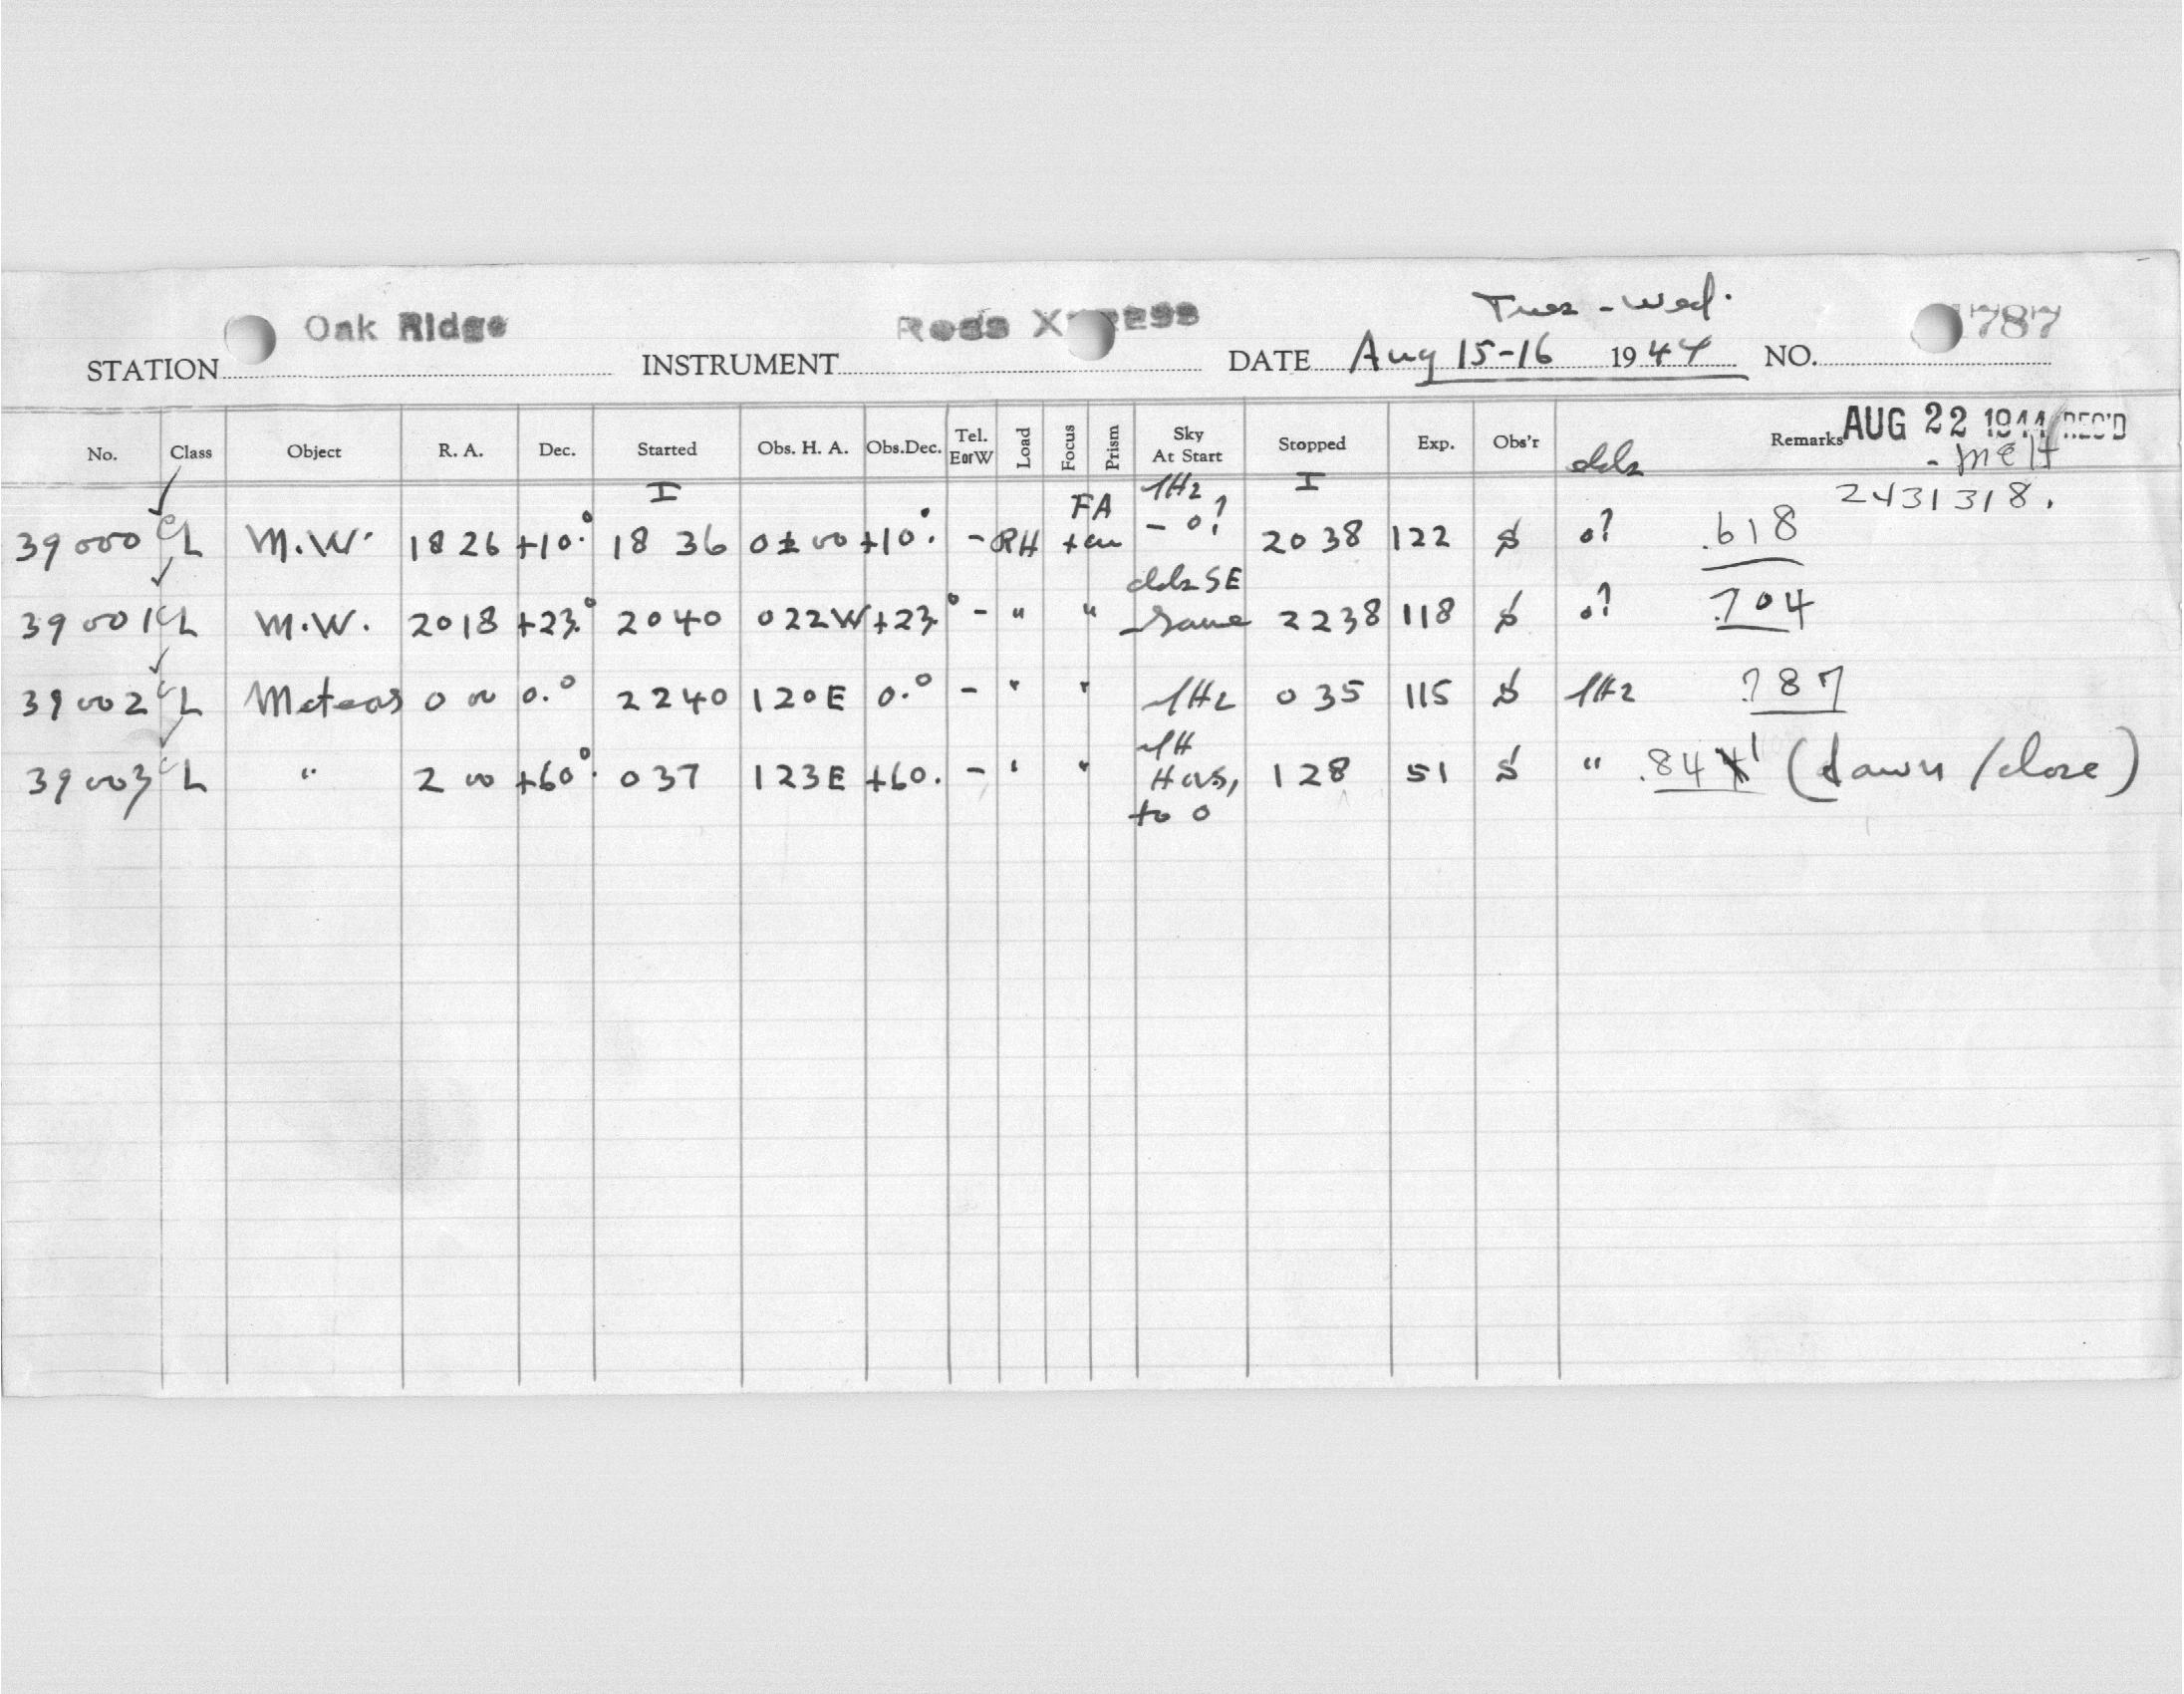 Tues - Wed.
Oak Ridge Ross 787
STATION INSTRUMENT DATE Aug 15-16 1944 NO.
AUG 22 1944 REC'D
No. Class Object R. A. Dec. Started Obs. H. A. Obs.Dec. Tel. EorW Load Focus Prism Sky At Start Stopped Exp. Obs'r Remarks
I FA I 2431318.
39000 L M.W. 18 26 +10.° 18 36 0± 00 +10.° - RH - 0? 2038 122 $ 0? .618
SE
39001 L M.W. 2018 +23.° 2040 022W +23.° - " " Same 2238 118 $ 0? .704
39002 L Meteors 0 00 0.° 2240 120E 0.° - " " 1H2 035 115 $ 1H2 .787
39003 L " 2 00 +60.° 037 123E +60. - " " 128 51 $ " .841 (dawn / close)
to 0